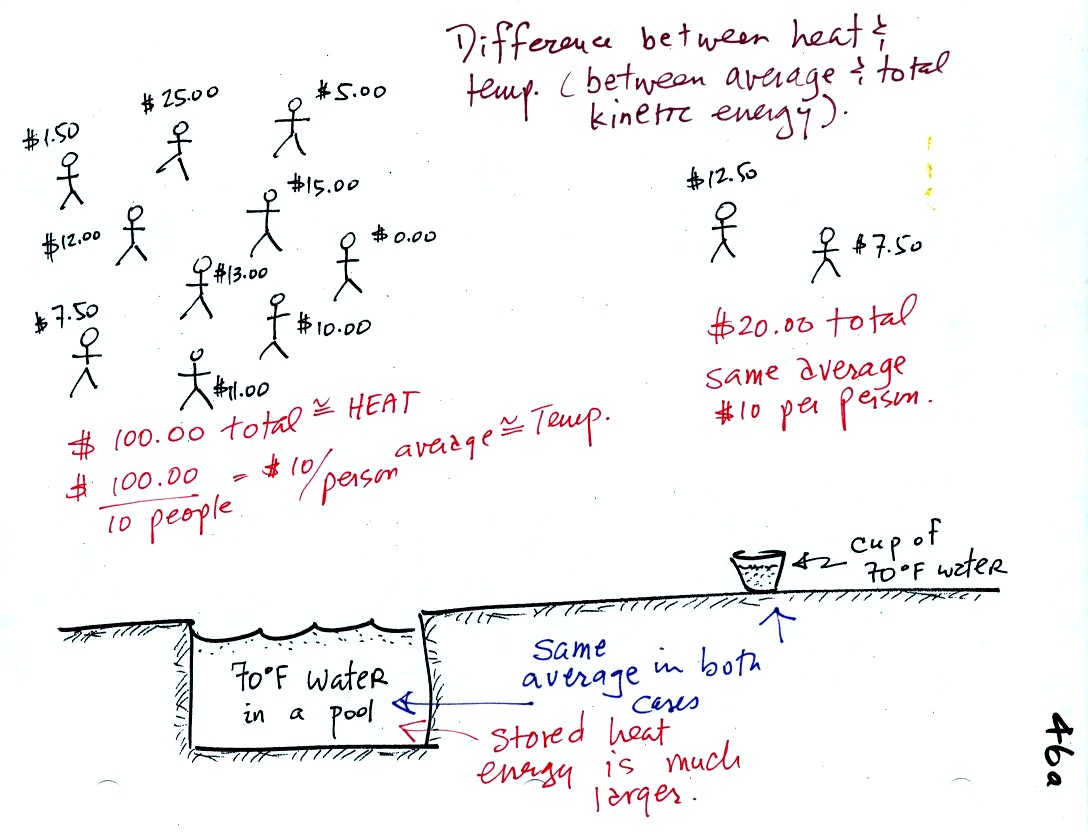 Difference between heat &
temp. (between average & total
kinetic energy).
$25.00
$5.00
$1.50
$15.00
$12.00
$0.00
$13.00
$7.50
$10.00
$11.00
$12.50
$7.50
$ 100.00 total ≅ HEAT
$ 100.00 / 10 people = $10/person average ≅ Temp.
$20.00 total
same average
$10 per person.
cup of
70°F water
70°F water
in a pool
same
average in both
cases
stored heat
energy is much
larger.
46a